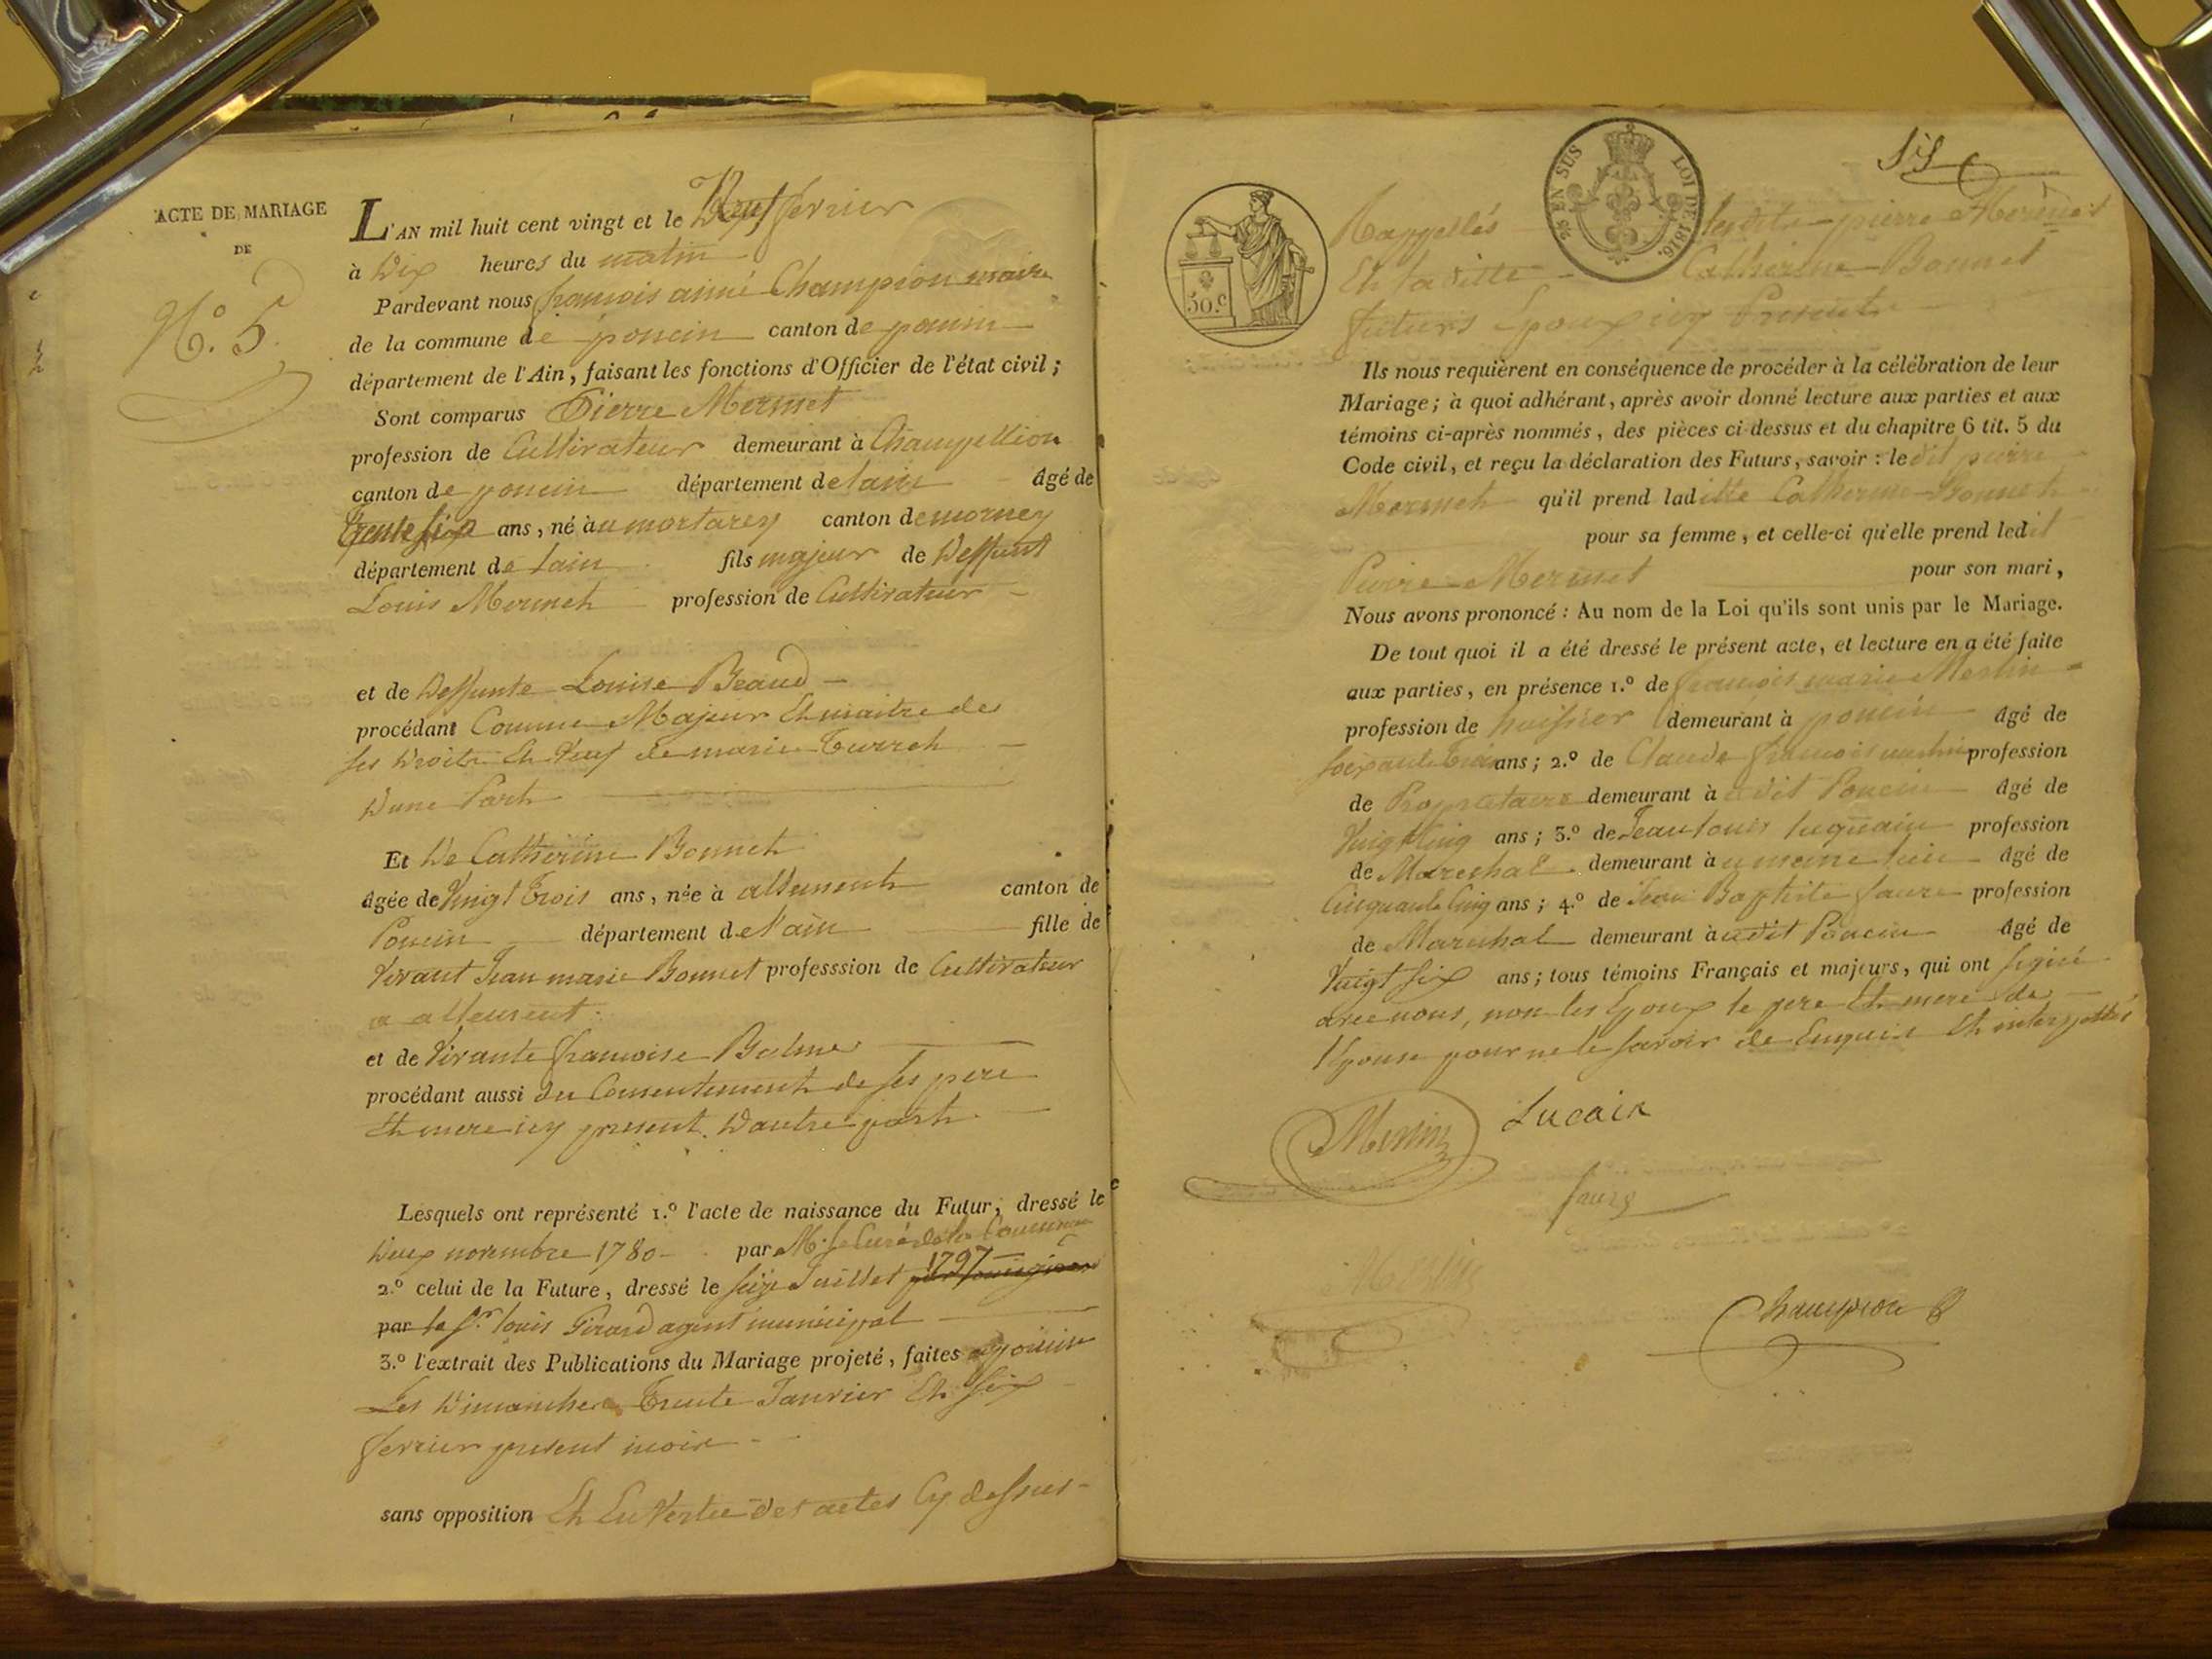 ACTE DE MARIAGE
DE
N.o 5
L'AN mil huit cent vingt et le neuf fevrier
à Dix heures du matin
Pardevant nous francois aimé Champion maire
de la commune de poncin canton de poncin
département de l'Ain, faisant les fonctions d'Officier de l'état civil ;
Sont comparus Pierre Mermet
profession de Cultivateur demeurant à Champellion
canton de poncin département de lain âgé de
trente six ans, né à au mortarey canton de mornay
département de lain fils majeur de Deffunt
Louis Mermet profession de Cultivateur
et de Deffunte Louise Beaud
procédant Comme Majeur Et maitre de
ses Droits Et Veuf de marie Turret
Dune Part
Et De Catherine Bonnet
âgée de Vingt Trois ans, née à allement canton de
Poncin département de lain fille de
Vivant Jean marie Bonnet professsion de Cultivateur
a allement
et de Vivante francoise Balme
procédant aussi du Consentement de ses pere
Et mere icy present. Dautre part
Lesquels ont représenté 1.o l'acte de naissance du Futur, dressé le
Deux novembre 1780 par Mr le Curé de la Commune
2.o celui de la Future, dressé le seize Juillet 1797
par le Sr louis Girard agent municipal
3.o l'extrait des Publications du Mariage projeté, faites a poncin
Les Dimanches Trente Janvier Et Six
fevrier present mois
sans opposition Et En Vertu des actes Cy dessus
six
50 c
¼ EN SUS LOI DE 1816.
Rappellés ledit pierre Mermet
Et la ditte Catherine Bonnet
futurs Epoux icy Presents
Ils nous requièrent en conséquence de procéder à la célébration de leur
Mariage ; à quoi adhérant, après avoir donné lecture aux parties et aux
témoins ci-après nommés, des pièces ci-dessus et du chapitre 6 tit. 5 du
Code civil, et reçu la déclaration des Futurs, savoir : le dit pierre
Mermet qu'il prend laditte Catherine Bonnet
pour sa femme, et celle-ci qu'elle prend ledit
Pierre Mermet pour son mari,
Nous avons prononcé : Au nom de la Loi qu'ils sont unis par le Mariage.
De tout quoi il a été dressé le présent acte, et lecture en a été faite
aux parties, en présence 1.o de francois marie Merlin
profession de huissier demeurant à poncin âgé de
soixante Trois ans ; 2.o de Claude francois merlin profession
de Propriétaire demeurant à udit Poncin âgé de
Vingt Cinq ans ; 3.o de Jean louis luquain profession
de Marechal demeurant à u meme lieu âgé de
Cinquante Cinq ans ; 4.o de Jean Baptiste faure profession
de Marechal demeurant à udit Poncin âgé de
Vingt six ans ; tous témoins Français et majeurs, qui ont signé
avec nous, non les Epoux le pere Et mere de
l'Epouse pour ne le savoir de Enquis Et interpellés
Merlin Lucain
faure
Merlin
Champion